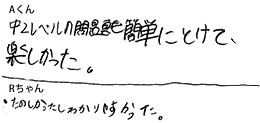 Aくん
中2レベルの問題も簡単にとけて、
楽しかった。
Rちゃん
・たのしかったしわかりやすかった。